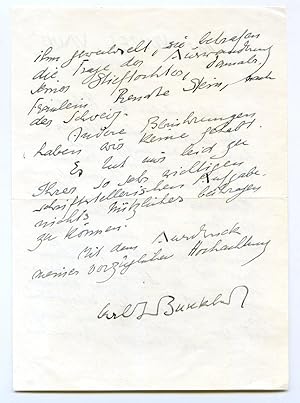 ihm gewechselt, sie betrafen
die Frage der Auswanderung
seiner Stieftochter, damals,
Fräulein Renate Stein, nach
der Schweiz.
Andere Berührungen
haben wir keine gehabt.
Es tut mir leid zu
Ihrer so sehr wichtigen
schriftstellerischen Aufgabe
nichts Nützliches beitragen
zu können.
Mit dem Ausdruck
meiner vorzüglichen Hochachtung
Burckhardt